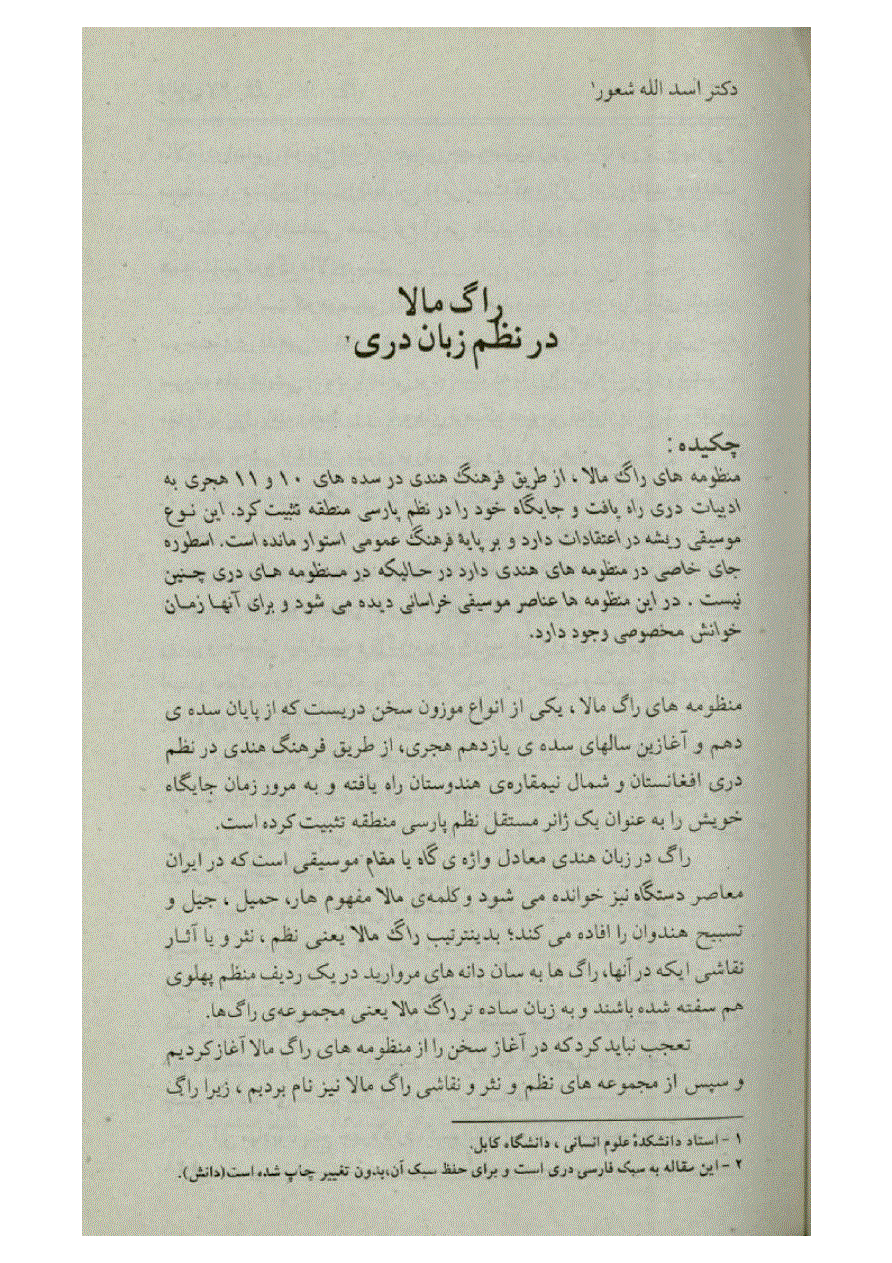 دکتر اسد الله شعور۱
راگ مالا
در نظم زبان دری۲
چکیده :
منظومه های راگ مالا ، از طریق فرهنگ هندی در سده های ۱۰ و ۱۱ هجری به
ادبیات دری راه یافت و جایگاه خود را در نظم پارسی منطقه تثبیت کرد. این نـوع
موسیقی ریشه در اعتقادات دارد و بر پایۀ فرهنگ عمومی استوار مانده است. اسطوره
جای خاصی در منظومه های هندی دارد در حـالیکه در مـنظومه هـای دری چـنین
نیست . در این منظومه ها عناصر موسیقی خراسانی دیده می شود و برای آنهـا زمـان
خوانش مخصوصی وجود دارد.
منظومه های راگ مالا ، یکی از انواع موزون سخن دریست که از پایان سده ی
دهم و آغازین سالهای سده ی یازدهم هجری، از طریق فرهنگ هندی در نظم
دری افغانستان و شمال نیمقاره‌ی هندوستان راه یافته و به مرور زمان جایگاه
خویش را به عنوان یک ژانر مستقل نظم پارسی منطقه تثبیت کرده است.
راگ در زبان هندی معادل واژه ی گاه یا مقام موسیقی است که در ایران
معاصر دستگاه نیز خوانده می شود و کلمه‌ی مالا مفهوم هار، حمیل ، جیل و
تسبیح هندوان را افاده می کند؛ بدینترتیب راگ مالا یعنی نظم ، نثر و یا آثـار
نقاشی ایکه در آنها، راگ ها به سان دانه های مروارید در یک ردیف منظم پهلوی
هم سفته شده باشند و به زبان ساده تر راگ مالا یعنی مجموعه‌ی راگ‌ها.
تعجب نباید کرد که در آغاز سخن را از منظومه های راگ مالا آغاز کردیم
و سپس از مجموعه های نظم و نثر و نقاشی راگ مالا نیز نام بردیم ، زیرا راگ
۱ - استاد دانشکدۀ علوم انسانی ، دانشگاه کابل.
۲ - این مقاله به سبک فارسی دری است و برای حفظ سبک آن،بدون تغییر چاپ شده است(دانش).